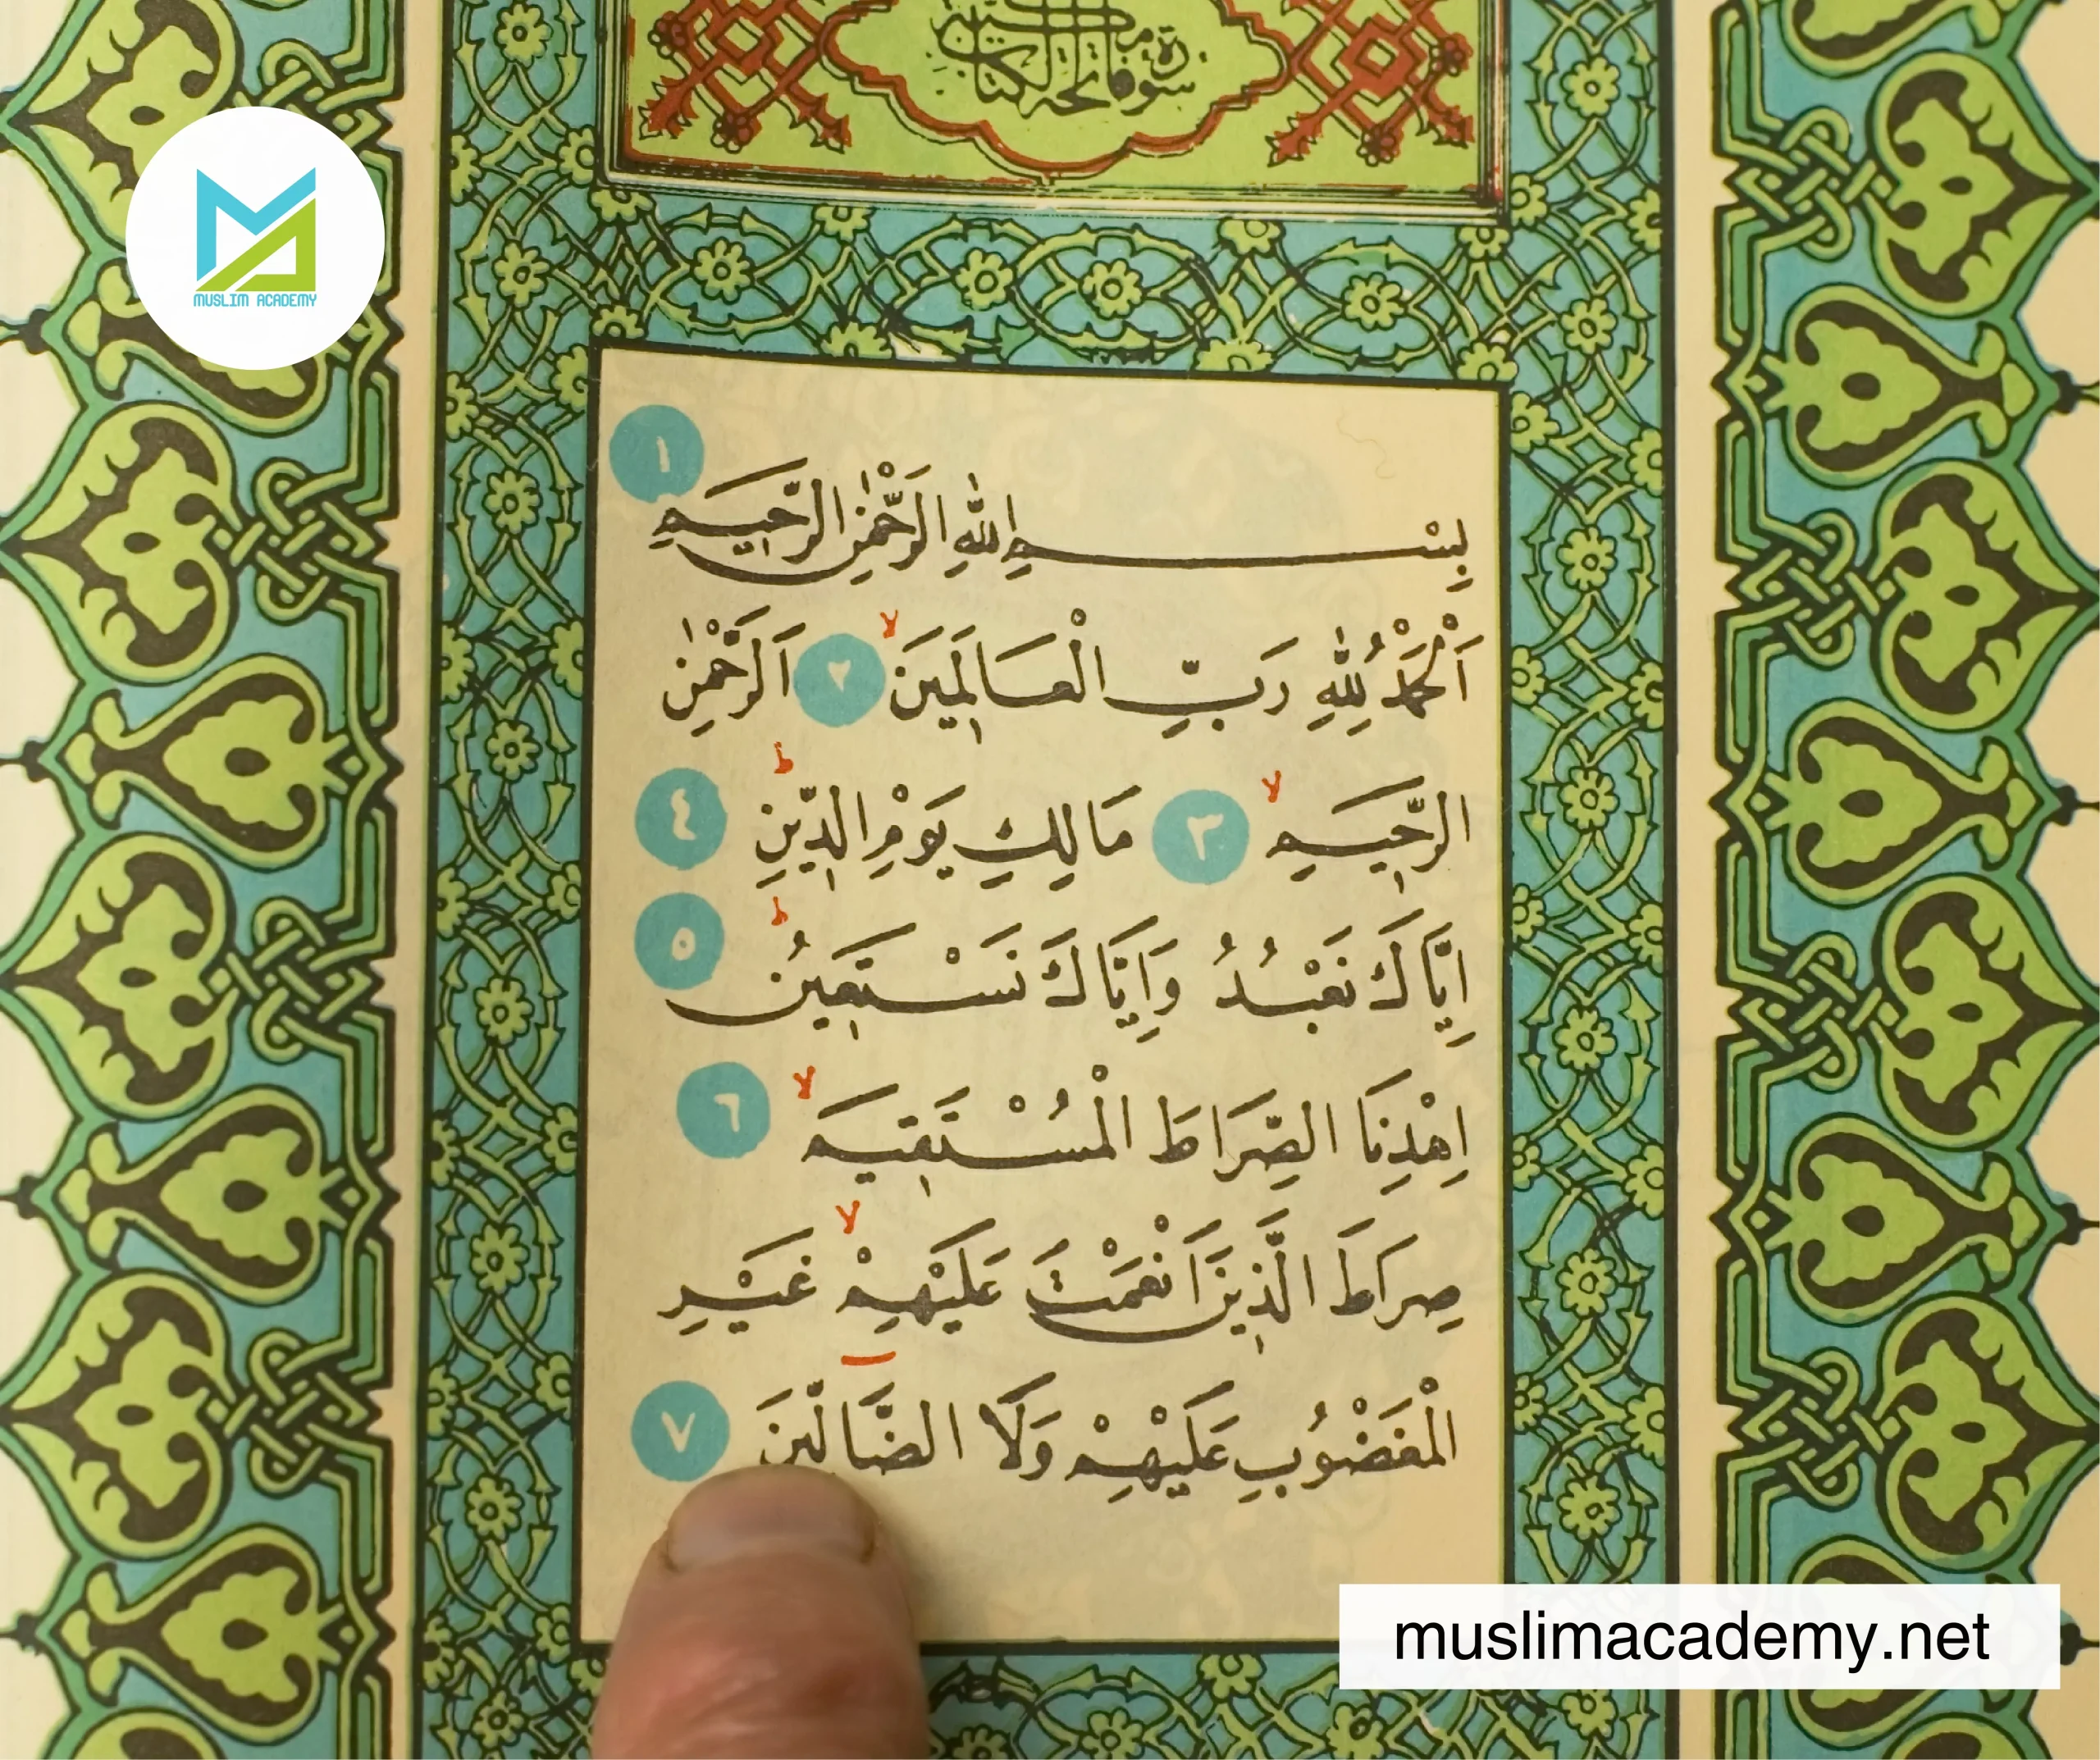 سورة فاتحة الكتاب مكية
MUSLIM ACADEMY
١
بِسْمِ اللهِ الرَّحْمٰنِ الرَّحِيمِ
اَلْحَمْدُ لِلّٰهِ رَبِّ الْعَالَمِينَ ۙ ٢ اَلرَّحْمٰنِ
الرَّحِيمِ ۙ ٣ مَالِكِ يَوْمِ الدِّينِ ۜ ٤
اِيَّاكَ نَعْبُدُ وَاِيَّاكَ نَسْتَعِينُ ۜ ٥
اِهْدِنَا الصِّرَاطَ الْمُسْتَقِيمَ ۙ ٦
صِرَاطَ الَّذِينَ اَنْعَمْتَ عَلَيْهِمْ ۙ غَيْرِ
الْمَغْضُوبِ عَلَيْهِمْ وَلَا الضَّالِّينَ ٧
muslimacademy.net